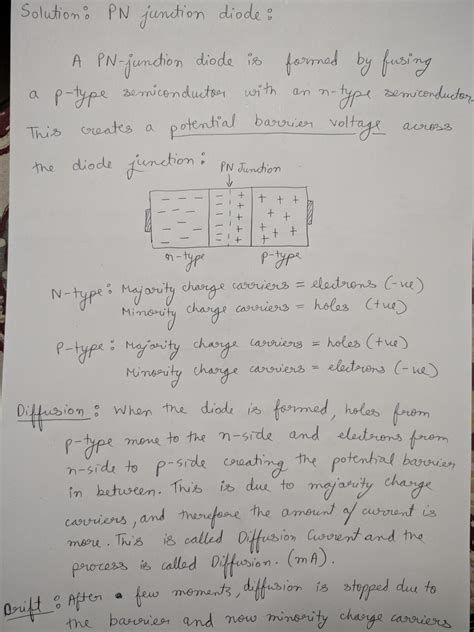 Solution: PN junction diode:
A PN-junction diode is formed by fusing
a p-type semiconductor with an n-type semiconductor
This creates a potential barrier voltage across
the diode junction:
PN Junction
n-type p-type
N-type: Majority charge carriers = electrons (-ve)
Minority charge carriers = holes (+ve)
P-type: Majority charge carriers = holes (+ve)
Minority charge carriers = electrons (-ve)
Diffusion: When the diode is formed, holes from
p-type move to the n-side and electrons from
n-side to p-side creating the potential barrier
in between. This is due to majority charge
carriers, and therefore the amount of current is
more. This is called Diffusion Current and the
process is called Diffusion. (mA).
Drift: After a few moments, diffusion is stopped due to
the barrier and now minority charge carriers